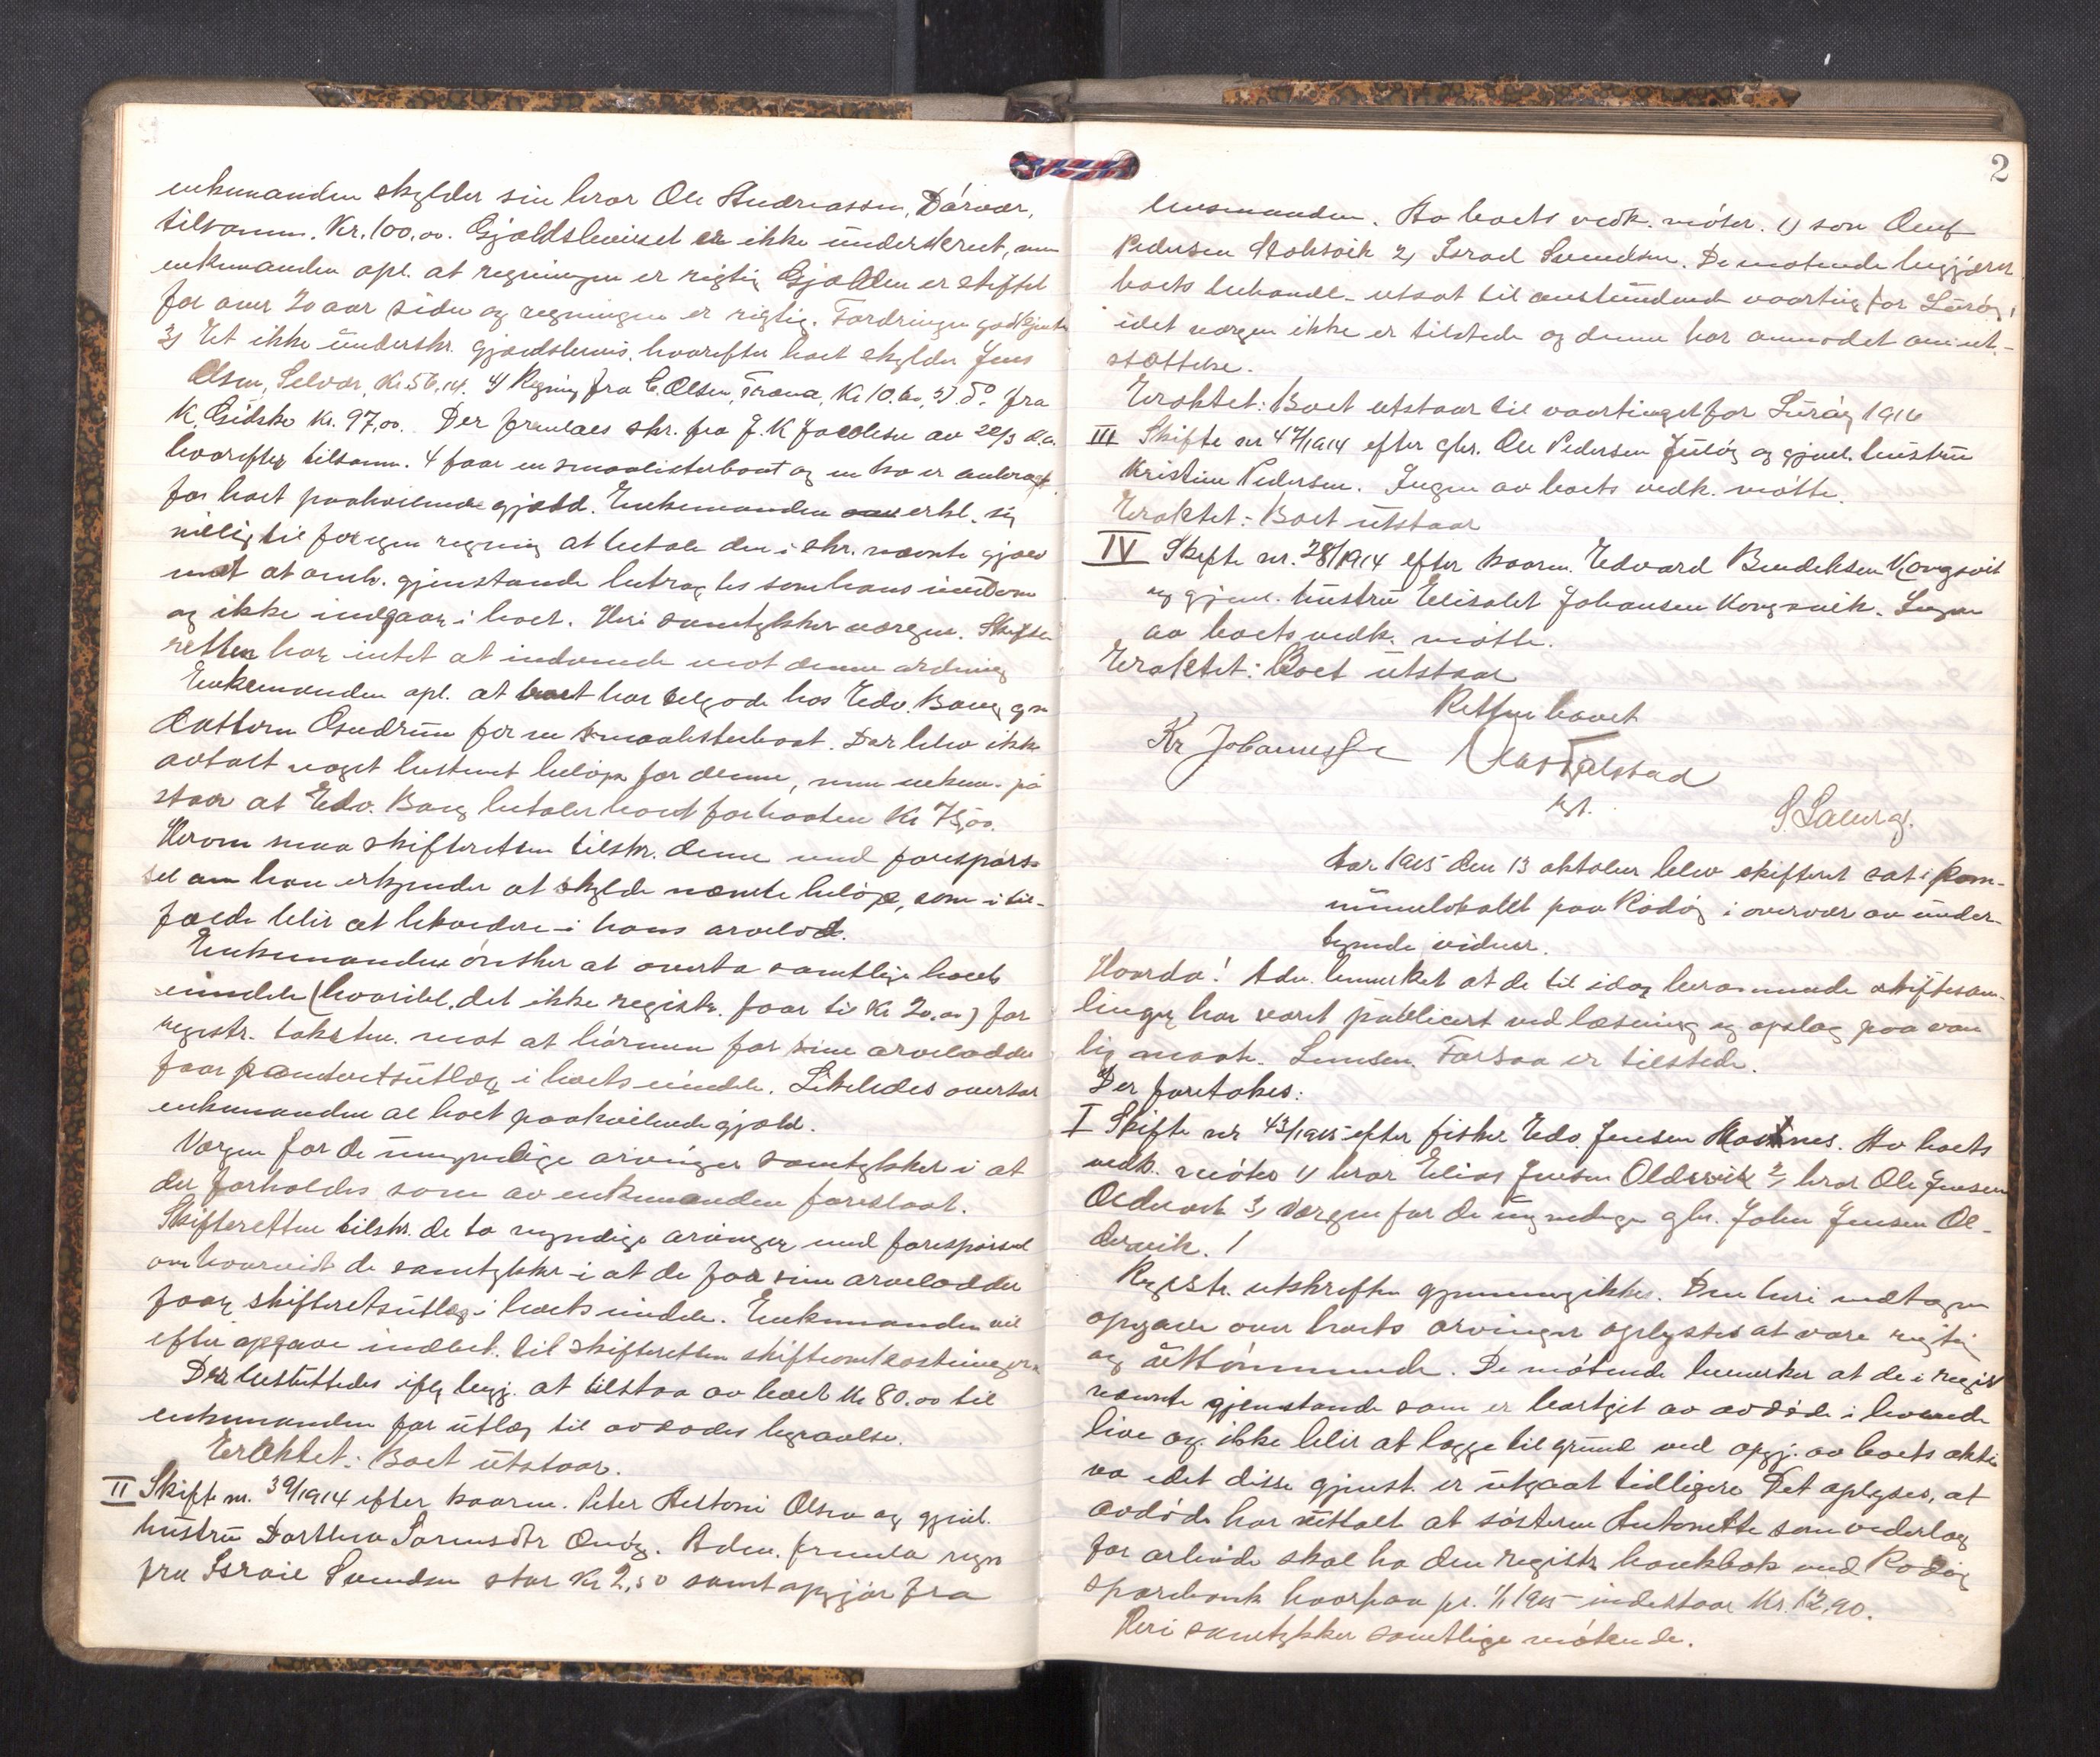 enkemanden skylder sin bror Ole Andreassen, Dørvær,
tilsamm. Kr. 100,00. Gjældsbeviset er ikke underskrevet, men
enkemanden opl. at regningen er rigtig Gjælden er stiftet
for over 20 aar siden og regningen er rigtig. Fordringen godkjendtes
3) Et ikke underskr. gjældsbevis. hvorefter boet skylder Jens
Olsen, Selvær, Kr. 56,14. 4) Regning fra C. Olsen, Træna, Kr 10.60, 5) do. fra
K. Gildsko Kr. 97,00. Der fremlaes skr. fra J. K. Jacobsen av 20/3 d.a.
hvorefter tilsamm. 4 faar en smaalisterbaat og en ko er anbragt
for boet paahvilende gjæld. Enkemanden erkl. sig
villig til for egen regning at betale den i skr. nævnte gjæld
mot at omh. gjenstande betragtes som hans eiendom
og ikke indgaar i boet. Heri samtykker værgen. Skifte-
retten har intet at indvende mot denne ordning
Enkemanden opl. at boet har tilgode hos Edv. Baug gm
datteren Gudrun for en smaalisterbaat. Der blev ikke
avtalt noget bestemt beløp for denne, men enkem. på
staar at Edv. Baug betaler boet for baaten Kr 75,00.
Herom maa skifteretten tilskr. denne med forespørs-
sel om han erkjender at skylde nævnte beløp, som i til-
fælde blir at likvidere i hans arvelod.
Enkemanden ønsker at overta samtlige boets
eiendele (hvoribl. det ikke registr. faar til Kr 20,00) for
registr. taksten. mot at børnene for sine arvelodder
faar panteretsutlæg i boets eiendele. Likeledes overtar
enkemanden al boet paahvilende gjæld.
Værgen for de umyndige arvinger samtykker i at
der forholdes som av enkemanden foreslaat.
Skifteretten tilskr. de to myndige arvinger med forespørsel
om hvorvidt de samtykker i at de for sine arvelodder
faar skifteretsutlæg i boets eiendele. Enkemanden vil
efter opgave indbet. til skifteretten skifteomkostningerne
Det besluttedes iflg begj. at tilstaa av boet Kr 80.00 til
enkemanden for utlæg til avdødes begravelse.
Eraktet: Boet utstaar.
II Skifte nr. 39/1914 efter kaarm. Peter Andtoni Olsen og gjenl.
hustru Dorthea Sørensdtr Onøy. Adm. fremla regn
fra Israel Svendsen stor Kr 2,50 samt opgjør fra
2
lensmanden. Av boets vedk. møter. 1) søn Oluf
Pedersen Stoksvik 2) Israel Svendsen. De møtende begjærer
boets behandl. utsat til anstundende vaarting for Lurøy,
idet værgen ikke er tilstede og denne har anmodet om ut-
sættelse.
Eraktet: Boet utstaar til vaartinget for Lurøy 1916
III Skifte nr 47/1914 efter gbr. Ole Pedersen Juløy og gjenl. hustru
Kristine Pedersen. Ingen av boets vedk. møtte.
Eraktet: Boet utstaar
IV Skifte nr. 28/1914 efter kaarm. Edvard Bendiksen Kongsvik
og gjenl. hustru Elisabet Johansen Kongsvik. Ingen
av boets vedk. møtte.
Eraktet: Boet utstaar
Retten hævet
Kr Johannessen
kst.
S. Laberg.
Aar 1915 den 13 oktober blev skifteret sat i kom-
munelokalet paa Rødøy i overvær av under-
tegnede vidner.
Hvorda! Adm. bemerket at de til idag berammede skiftesam-
linger har været publicert ved læsning og opslag paa van
lig maate. Lensm. Farsaa er tilstede.
Der foretakes:
I Skifte nr 43/1915 efter fisker Edv. Jensen . Av boets
vedk. møter 1) bror Elias Jensen Oldervik 2) bror Ole Jensen
Oldervik 3) Værgen for de umyndige gbr. John Jensen Ol-
dervik. /
Registr. utskriften gjennemgikkes. Den heri indtagne
opgave over boets arvinger oplystes at være rigtig
og uttømmende. De møtende bemerker at de i regist
nævnte gjenstande som er bortgit av avdøde i levende
live og ikke blir at lægge til grund ved opgj. av boets akti
va idet disse gjenst. er utgaat tidligere Det oplyses, at
avdøde har uttalt at søsteren Antonette som vederlag
for arbeide skal ha den registr. bankbok med Rødøy
sparebank hvorpaa pr. 1/1 1915 indestaar Kr. 12,90.
Heri samtykker samtlige møtende.